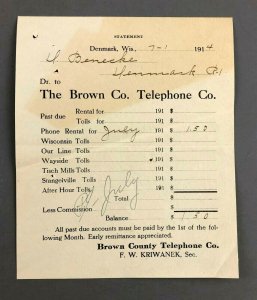 STATEMENT
Denmark, Wis., 7-1 1914
Benecke
Denmark
Dr. to
The Brown Co. Telephone Co.
Rental for 191 $
Past due
Tolls for 191 $
Phone Rental for July 191 $ 1.50
Wisconsin Tolls 191 $
Our Line Tolls 191 $
Wayside Tolls 191 $
Tisch Mills Tolls 191 $
Stangelville Tolls 191 $
After Hour Tolls 191 $
Total $
Less Commission $
Balance $ 1 50
July
All past due accounts must be paid by the 1st of the following Month. Early remittance appreciated.
Brown County Telephone Co.
F. W. KRIWANEK, Sec.